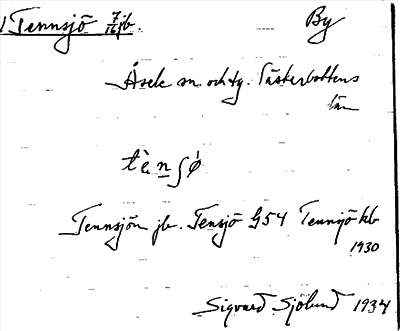 1 Tennsjö 7/16 jb. By
Åsele sn. och tg. Västerbottens
län
tènʃǿ
Tennsjön jb. Tensjö G54 Tennsjö kb
1930
Sigvard Sjölund 1934